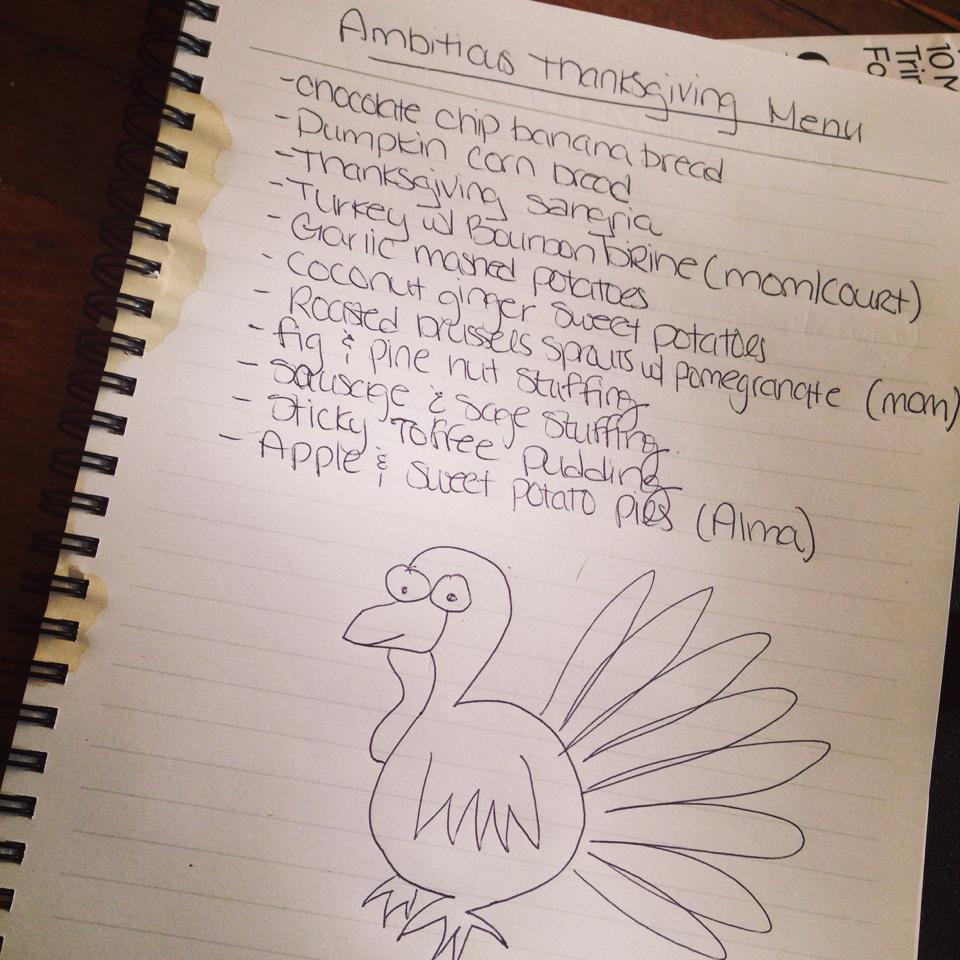 Ambitious Thanksgiving Menu
- chocolate chip banana bread
- Pumpkin corn bread
- Thanksgiving sangria
- Turkey w/ Bourbon brine (mom/court)
- Garlic mashed potatoes
- coconut ginger sweet potatoes
- Roasted brussels sprouts w/ pomegranate (mom)
- fig & pine nut stuffing
- sausage & sage stuffing
- Sticky Toffee pudding
- Apple & sweet potato pies (Alma)
10
Fo